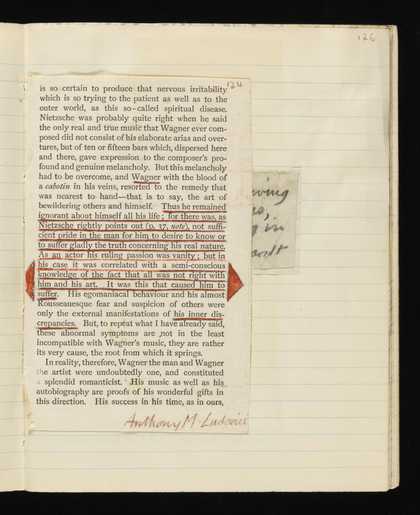 126
124
is so certain to produce that nervous irritability
which is so trying to the patient as well as to the
outer world, as this so-called spiritual disease.
Nietzsche was probably quite right when he said
the only real and true music that Wagner ever com-
posed did not consist of his elaborate arias and over-
tures, but of ten or fifteen bars which, dispersed here
and there, gave expression to the composer's pro-
found and genuine melancholy. But this melancholy
had to be overcome, and Wagner with the blood of
a cabotin in his veins, resorted to the remedy that
was nearest to hand—that is to say, the art of
bewildering others and himself. Thus he remained
ignorant about himself all his life; for there was, as
Nietzsche rightly points out (p. 37, note), not suffi-
cient pride in the man for him to desire to know or
to suffer gladly the truth concerning his real nature.
As an actor his ruling passion was vanity; but in
his case it was correlated with a semi-conscious
knowledge of the fact that all was not right with
him and his art. It was this that caused him to
suffer. His egomaniacal behaviour and his almost
Rousseauesque fear and suspicion of others were
only the external manifestations of his inner dis-
crepancies. But, to repeat what I have already said,
these abnormal symptoms are not in the least
incompatible with Wagner's music, they are rather
its very cause, the root from which it springs.
In reality, therefore, Wagner the man and Wagner
the artist were undoubtedly one, and constituted
a splendid romanticist. His music as well as his
autobiography are proofs of his wonderful gifts in
this direction. His success in his time, as in ours,
Anthony M. Ludovici
in